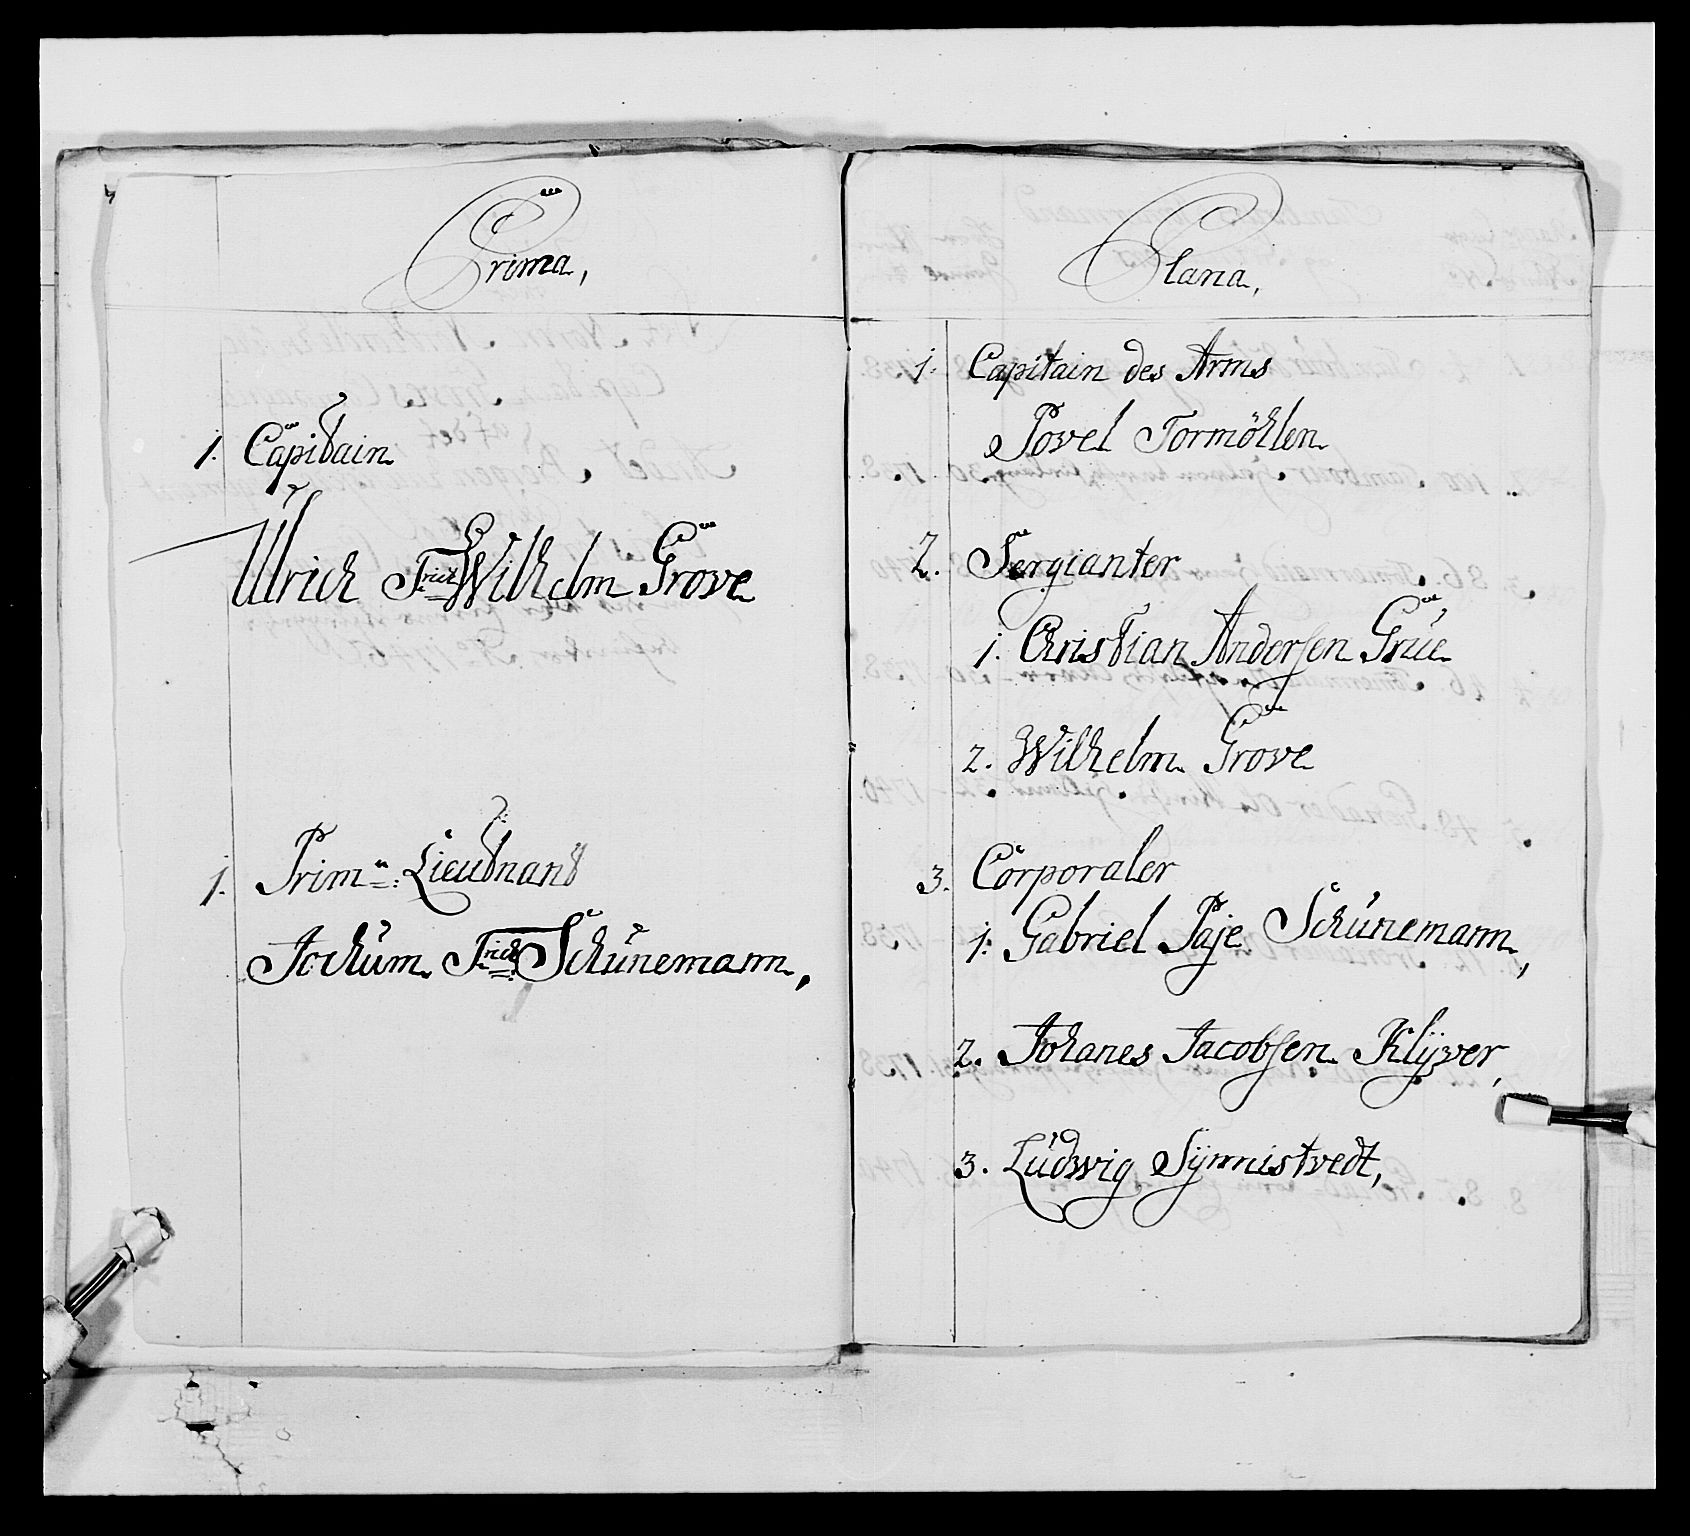 Prima,
1. Capitain
Ulrich Frich Wilhelm Grove
1. Prim: Lieutnant
Jochum Frich Schünemann,
Plana,
1. Capitain des Arms
Povel Tormöhlen
2. Sergianter
1. Christian Andersen Grüe
2. Wilhelm Grove
3. Corporaler
1. Gabriel Paje Schünemann,
2. Johanes Jacobsen Klÿver,
3. Ludwig Sÿnnistvedt,